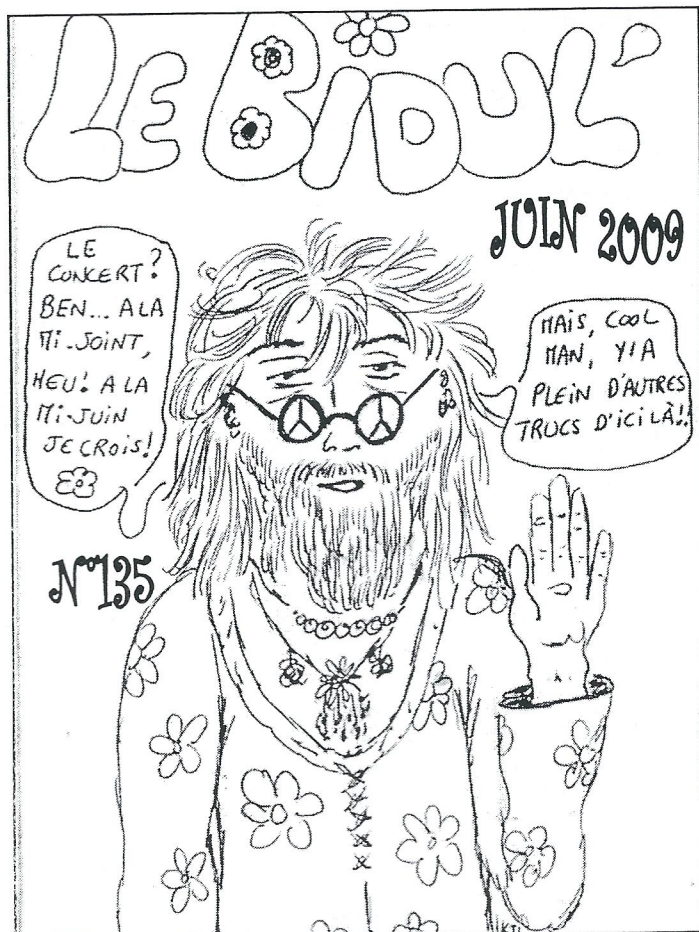 LE BIDUL'
JUIN 2009
LE
CONCERT?
BEN... A LA
MI-JOINT,
HEU! A LA
MI-JUIN
JE CROIS!
MAIS, COOL
MAN, Y'A
PLEIN D'AUTRES
TRUCS D'ICI LÀ!!
N°135